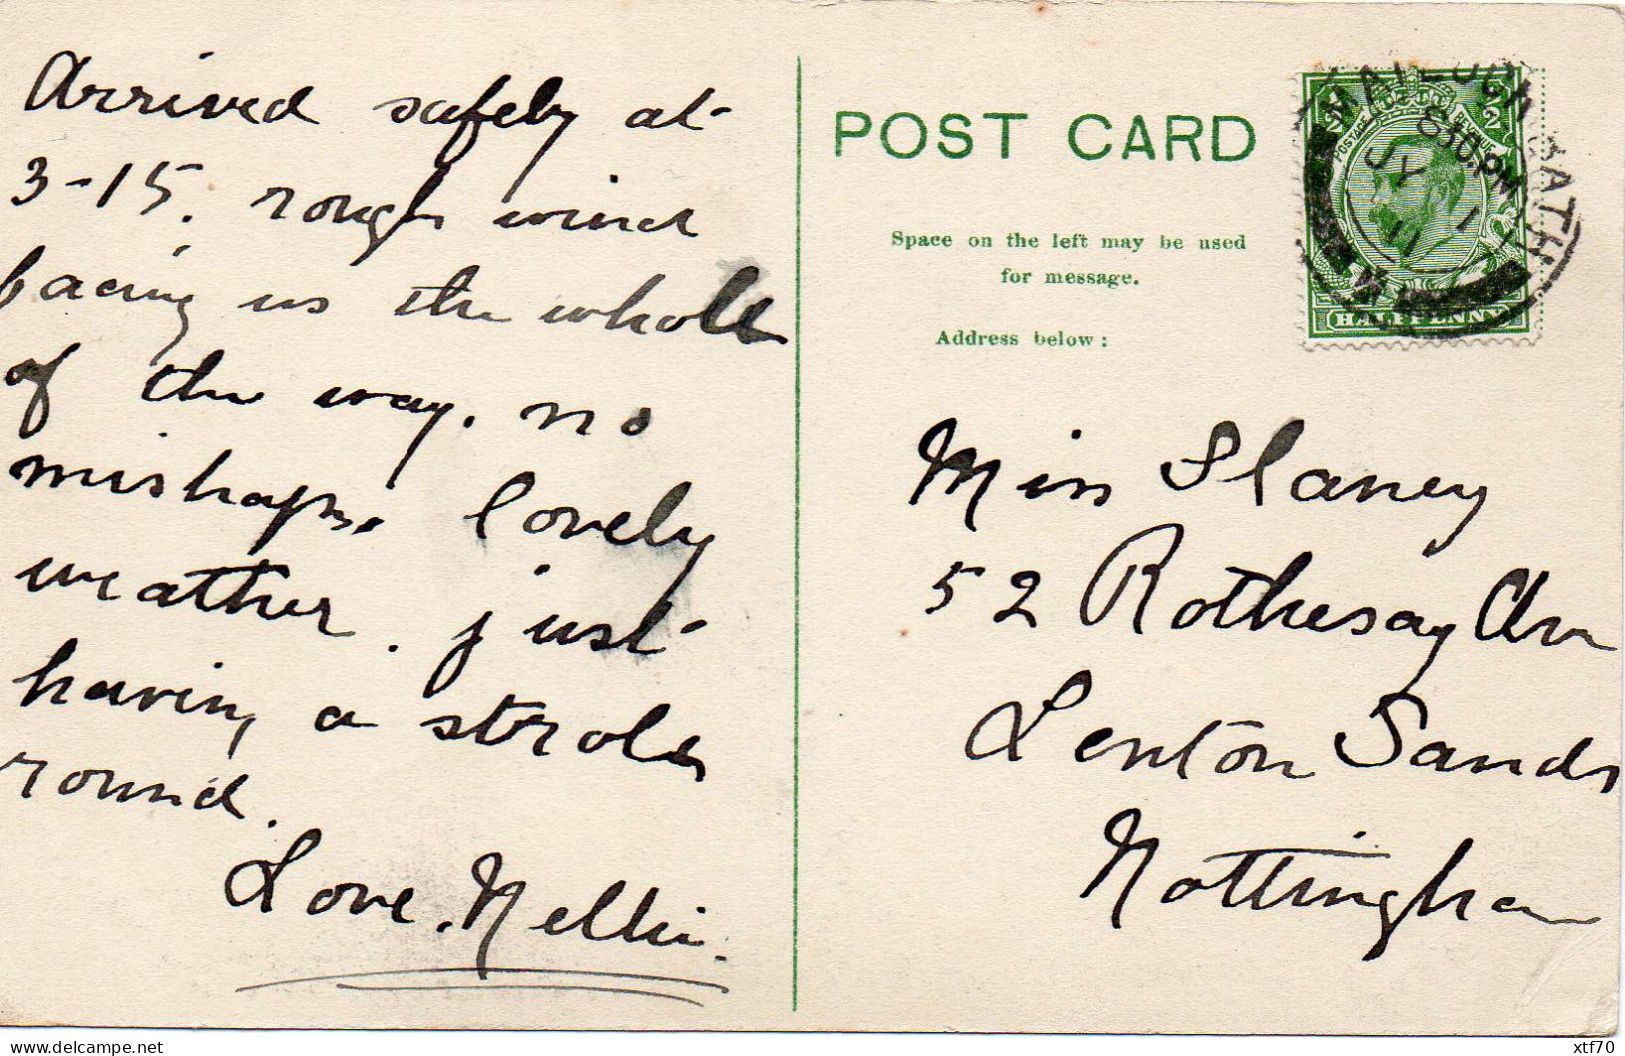 Arrived safely at
3-15. rough wind
facing us the whole
of the way. no
mishaps. lovely
weather. just
having a strole
round.
Love. Nellie.
POST CARD
Space on the left may be used
for message.
Address below:
Miss Slaney
52 Rothesay Ave
Lenton Sands
Nottingham
MATLOCK BATH
8 15 PM
JY 1
11
POSTAGE REVENUE
HALFPENNY
delcampe.net
xtf70